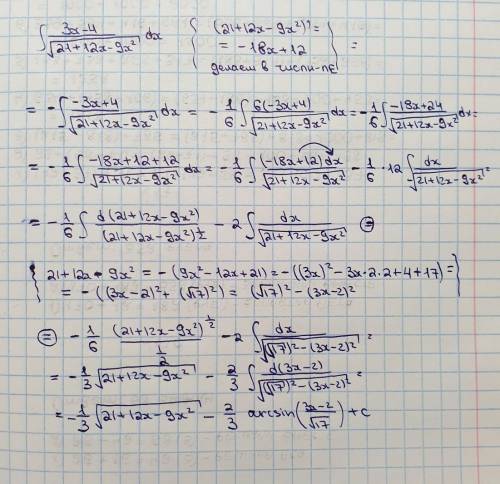 ∫ (3x-4)/√(21+12x-9x²) dx { (21+12x-9x²)' = = -18x+12 делаем в числи-ле } =
= -∫ (-3x+4)/√(21+12x-9x²) dx = -1/6 ∫ 6(-3x+4)/√(21+12x-9x²) dx = -1/6 ∫ (-18x+24)/√(21+12x-9x²) dx =
= -1/6 ∫ (-18x+12+12)/√(21+12x-9x²) dx = -1/6 ∫ (-18x+12)dx/√(21+12x-9x²) - 1/6 · 12 ∫ dx/√(21+12x-9x²) =
= -1/6 ∫ d(21+12x-9x²)/(21+12x-9x²)^½ - 2 ∫ dx/√(21+12x-9x²) ⊜
{ 21+12x-9x² = -(9x²-12x+21) = -((3x)²-3x·2·2+4+17) =
= -((3x-2)²+(√17)²) = (√17)²-(3x-2)² }
⊜ -1/6 (21+12x-9x²)^½/(1/2) - 2 ∫ dx/√((√17)²-(3x-2)²) =
= -1/3 √(21+12x-9x²) - 2/3 ∫ d(3x-2)/√((√17)²-(3x-2)²) =
= -1/3 √(21+12x-9x²) - 2/3 arcsin((3x-2)/√17) + c